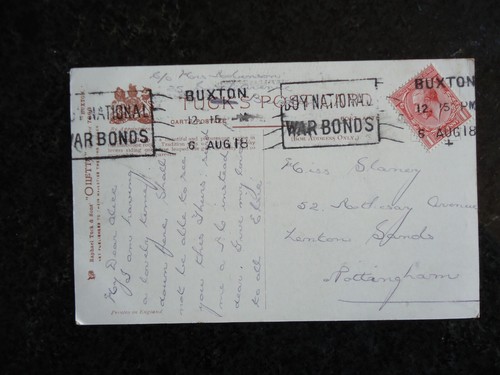 BUXTON
12. 15 PM
6 AUG 18
BUY NATIONAL
WAR BONDS
BUXTON
12. 15 PM
6 AUG 18
NATIONAL
WAR BONDS
TUCK'S POST
CARTE POSTALE
(FOR ADDRESS ONLY.)
Raphael Tuck & Sons' "OILETTE"
Miss Stamey
52. Rothesay Avenue
Lenton Sands
Nottingham
My Dear Alice
I am having
a lovely time
down here Shall
not be able to see
you this Thurs: send
me a P.C instead
dear. Give my love
to all Ethle
Printed in England.